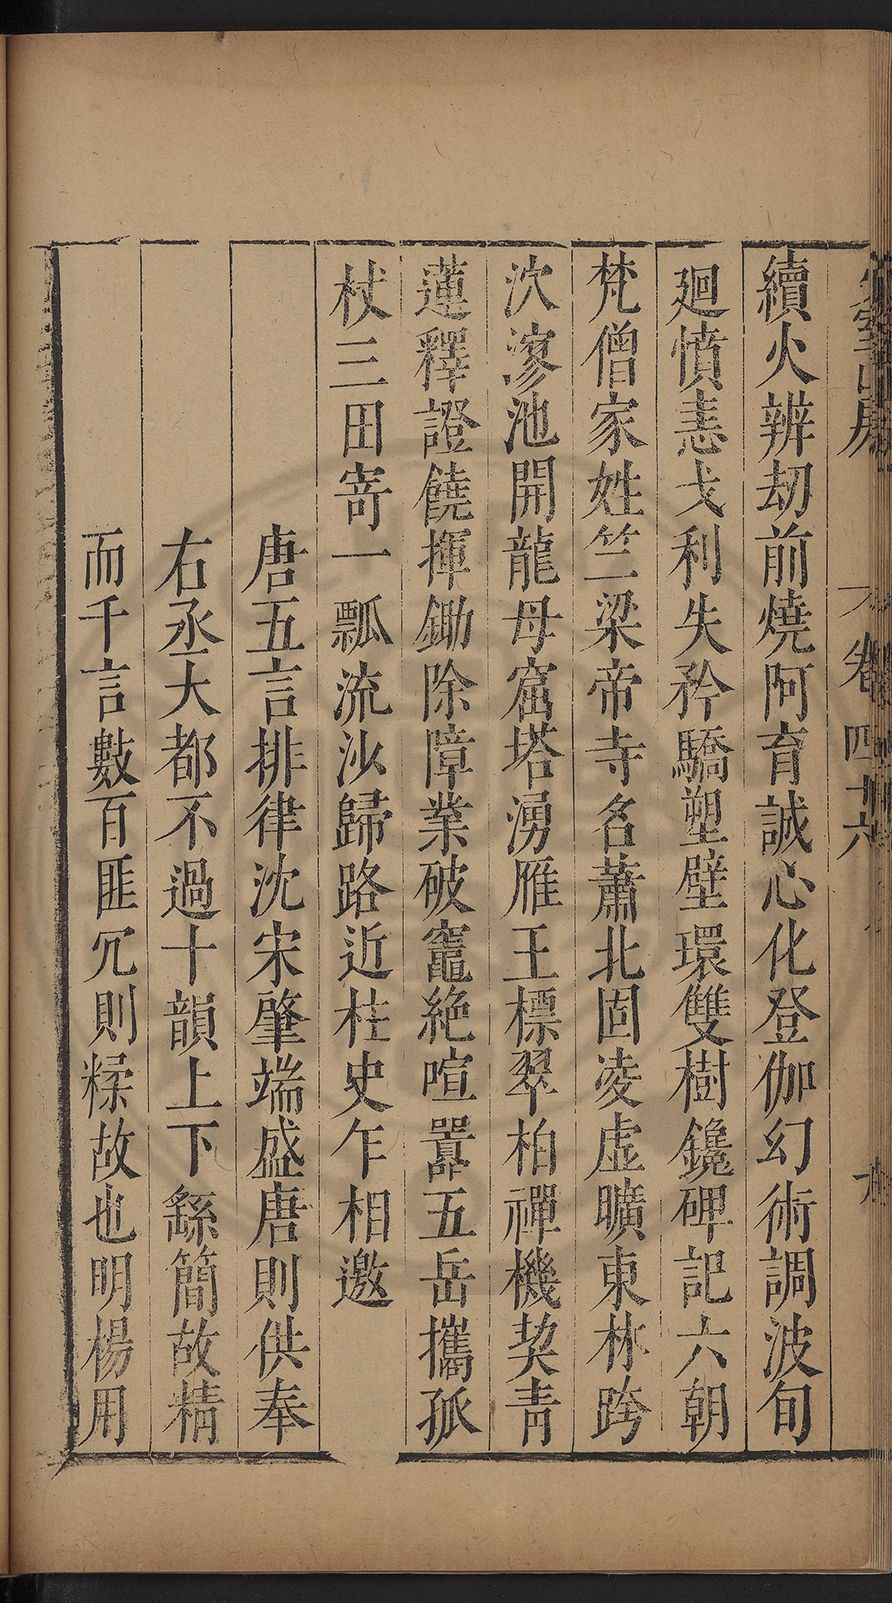 卷四十六
續火辨劫前燒阿育誠心化登伽幻術調波旬
廻憤恚戈利失矜驕塑壁環雙樹鑱碑記六朝
梵僧家姓竺梁帝寺名蕭北固凌虛曠東林跨
次漻池開龍母窟塔湧雁王標翠柏禪機契靑
蓮釋證饒揮鋤除障業破竈絶喧囂五岳攜孤
杖三田寄一瓢流沙歸路近柱史乍相邀
唐五言排律沈宋肇端盛唐則供奉
右丞大都不過十韻上下繇簡故精
而千言數百匪冗則糅故也明楊用